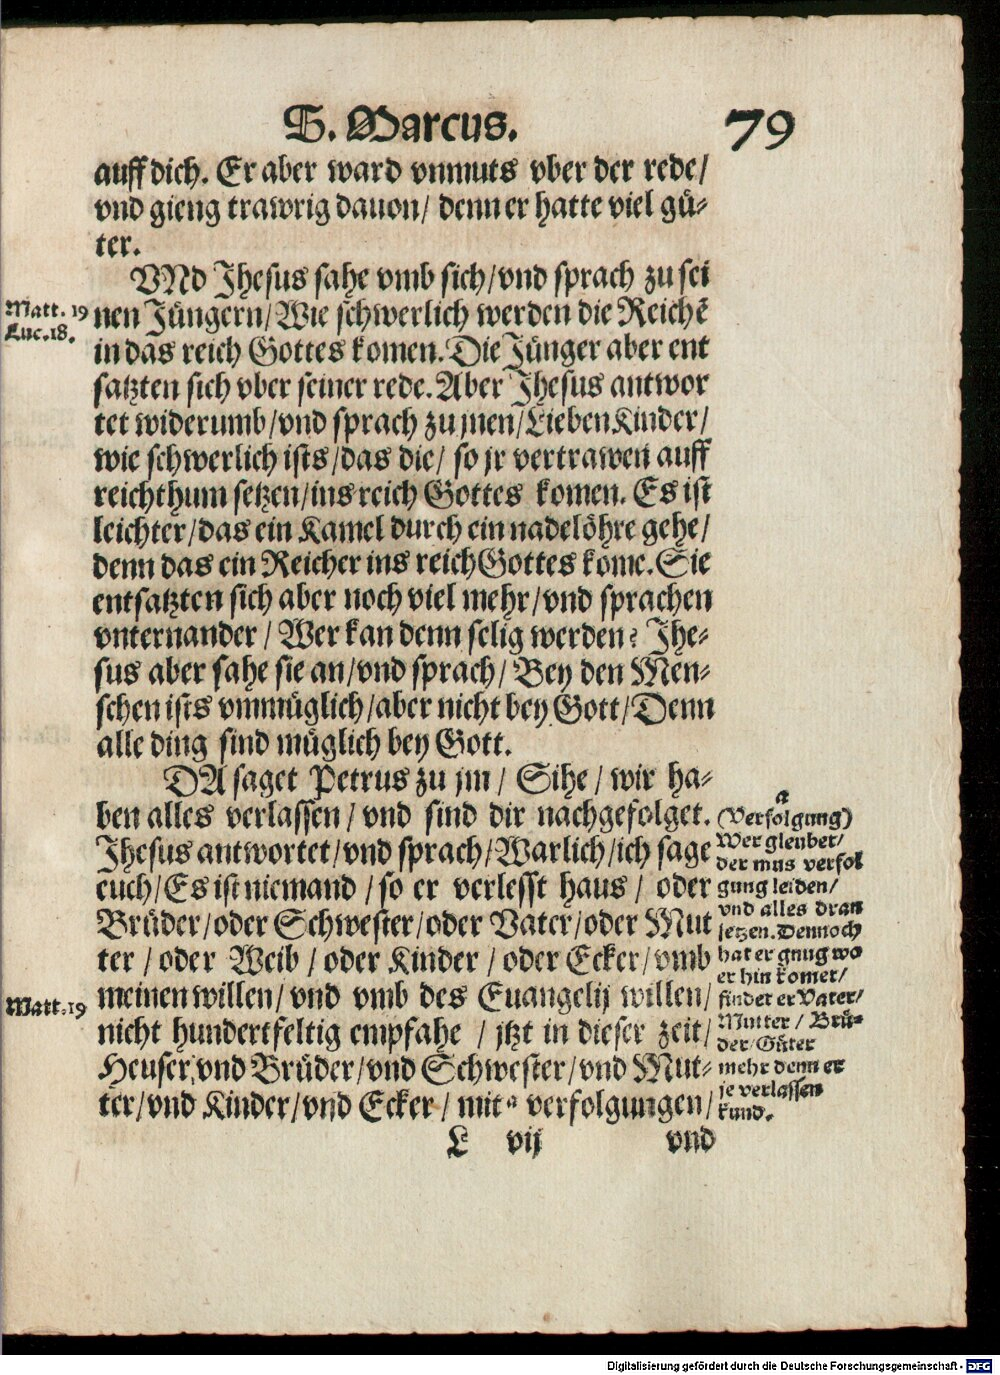 S. Marcus. 79
auff dich. Er aber ward vnmuts vber der rede/
vnd gieng trawrig dauon/ denn er hatte viel gü-
ter.
VNd Jhesus sahe vmb sich/vnd sprach zu sei
Matt. 19
Luc. 18.
nen Jüngern/Wie schwerlich werden die Reichẽ
in das reich Gottes komen. Die Jünger aber ent
satzten sich vber seiner rede. Aber Jhesus antwor
tet widerumb/vnd sprach zu jnen/Lieben Kinder/
wie schwerlich ists/das die/ so jr vertrawen auff
reichthum setzen/ins reich Gottes komen. Es ist
leichter/das ein Kamel durch ein nadelöhre gehe/
denn das ein Reicher ins reich Gottes kome. Sie
entsatzten sich aber noch viel mehr/vnd sprachen
vnternander/ Wer kan denn selig werden? Jhe-
sus aber sahe sie an/vnd sprach/ Bey den Men-
schen ists vnmüglich/aber nicht bey Gott/Denn
alle ding sind müglich bey Gott.
DA saget Petrus zu jm/ Sihe/ wir ha-
ben alles verlassen/ vnd sind dir nachgefolget.
Jhesus antwortet/vnd sprach/Warlich/ich sage
euch/Es ist niemand/so er verlesst haus/ oder
Brüder/oder Schwester/oder Vater/oder Mut
ter/ oder Weib/ oder Kinder/ oder Ecker/vmb
Matt. 19
meinen willen/ vnd vmb des Euangelij willen/
nicht hundertfeltig empfahe/ jtzt in dieser zeit/
Heuser, vnd Brüder/vnd Schwester/vnd Mut-
ter/vnd Kinder/vnd Ecker/ mit a verfolgungen/
a
(Verfolgung)
Wer gleubet/
der mus verfol
gung leiden/
vnd alles dran
setzen. Dennoch
hat er gnug wo
er hin komet/
findet er Vater/
Mutter/ Brü-
der/Güter
mehr denn er
je verlassen
kund.
L vij vnd
Digitalisierung gefördert durch die Deutsche Forschungsgemeinschaft - DFG